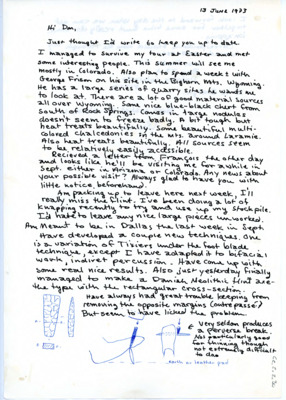 13 JUNE 1973
Hi Don,
Just thought I'd write to keep you up to date.
I managed to survive my tour at Easter and met
some interesting people. This summer will see me
mostly in Colorado. Also plan to spend a week with
George Frison on his site in the Bighorn Mts. Wyoming.
He has a large series of quarry sites he wants me
to look at. There are a lot of good material sources
all over Wyoming. Some nice blue-black chert from
South of Rock Springs. Comes in large nodules
doesn't seem to freeze badly. A bit tough but
heat treats beautifully. Some beautiful multi-
colored chalcedonies in the mts. around Laramie.
Also heat treats beautifully. All sources seem
to be relatively easily accessible.
Recieved a letter from François the other day
and looks like he'll be visiting me for awhile in
Sept. either in Arizona or Colorado. Any news about
your possible visit? Always glad to have you with
little notice, beforehand.
Am packing up to leave here next week. I'll
really miss the flint. I've been doing a lot of
knapping recently to try and use up my stockpile.
I'd hate to leave any nice large pieces unworked.
Am meant to be in Dallas the last week in Sept.
Have developed a couple new techniques. One
is a variation of Tixiers under the foot blade
technique, except I have adapted it to bifacial
work, indirect percussion. Have come up with
some real nice results. Also just yesterday finally
managed to make a Danish Neolithic flint axe-
the type with the rectangular cross-section.
Have always had great trouble keeping from
removing the opposite margins (outrepassé)
But seem to have licked the problem.
Very seldom produces
a perverse break.
Not particularly good
for thinning though
not extremely difficult
to do
earth or leather pad